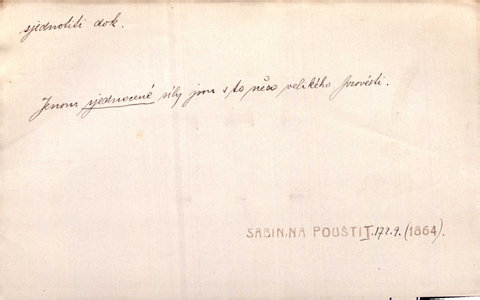 sjednotiti dok.
Jenom sjednocené síly jsou s to něco velikého provésti.
SABIN.NA POUŠTI I.172.9. (1864).